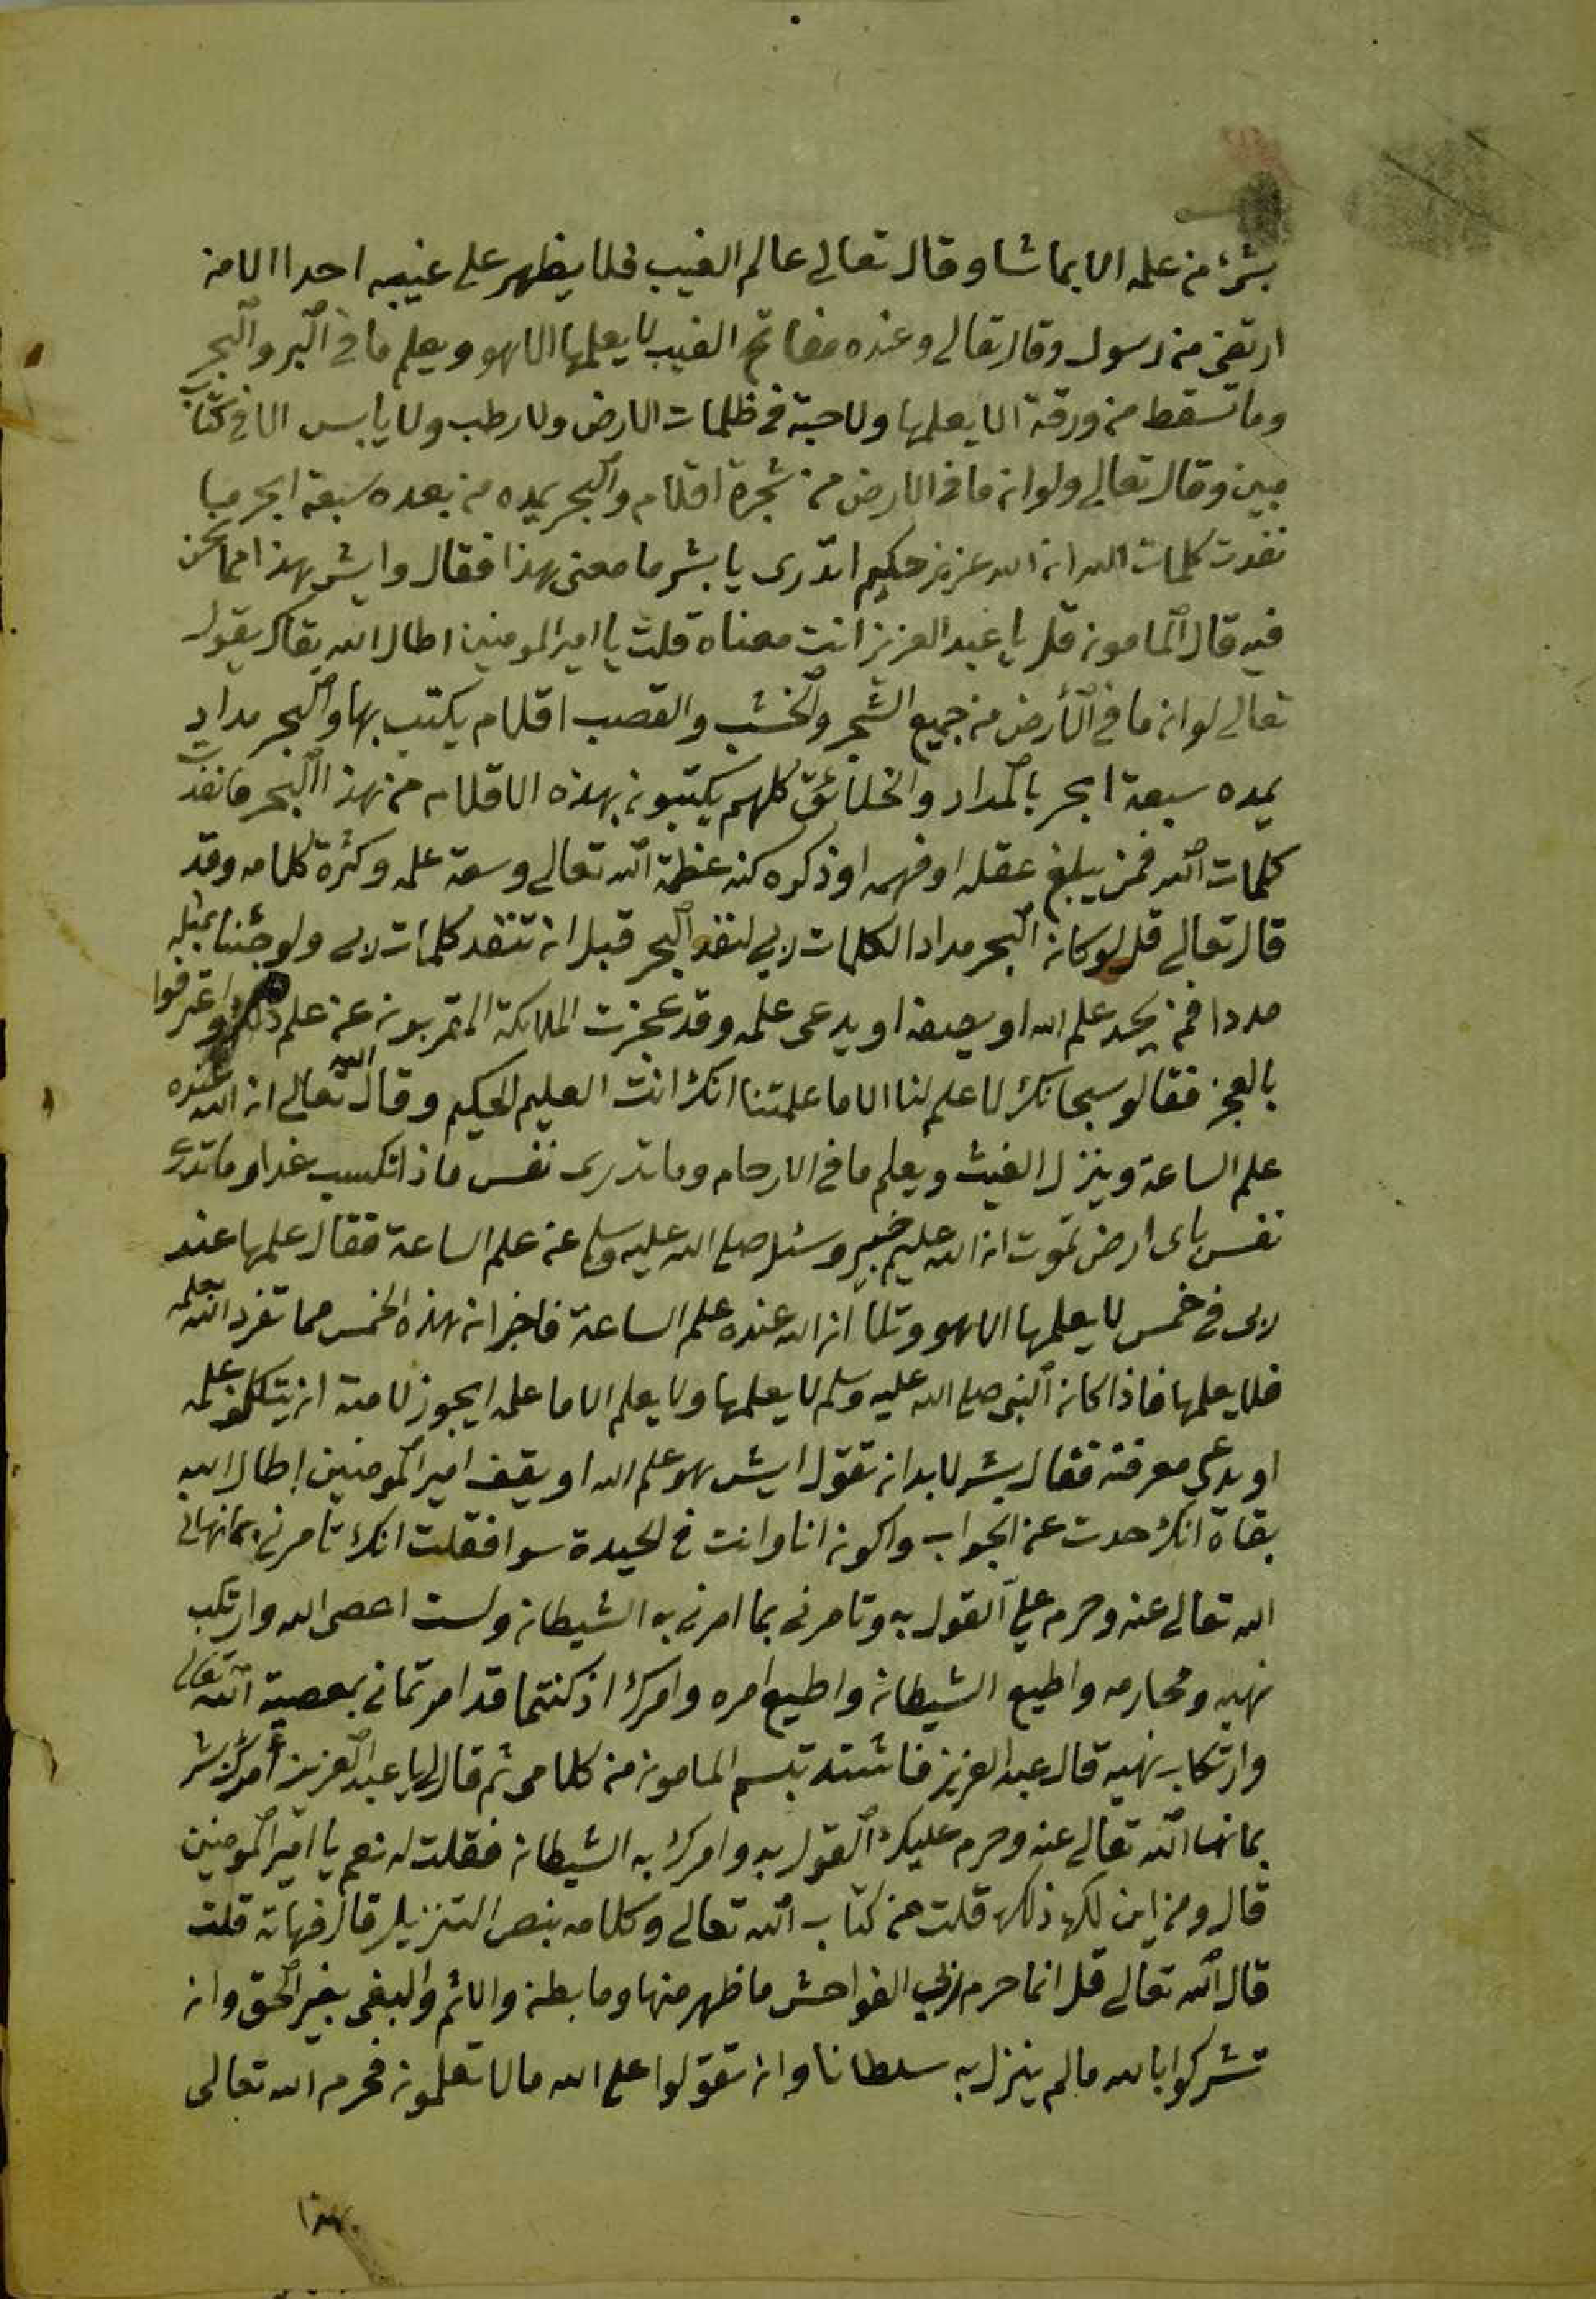 بشئ من علمه الا بما شا وقال تعالى عالم الغيب فلا يظهر على غيبه احدا الا من
ارتضى من رسول وقال تعالى وعنده مفاتح الغيب لا يعلمها الا هو ويعلم ما في البر والبحر
وما تسقط من ورقة الا يعلمها ولا حبة في ظلمات الارض ولا رطب ولا يابس الا في كتاب
مبين وقال تعالى ولو ان ما في الارض من شجرة اقلام والبحر يمده من بعده سبعة ابحر ما
نفدت كلمات الله ان الله عزيز حكيم اتدرى يا بشر ما معنى هذا فقال وايش هذا مما نحن
فيه قال المامون قل يا عبد العزيز انيت معناه قلت يا امير المومنين اطال الله بقاك يقول
تعالى لو ان ما في الأرض من جميع الشجر والخشب والقصب اقلام يكتب بها والبحر مداد
يمده سبعة ابحر بالمداد والخلائق كلهم يكتبون بهذه الاقلام من هذا البحر ما نفدت
كلمات الله فمن يبلغ عقله او فهمه او ذكره كنه عظمة الله تعالى وسعة علمه وكثرة كلامه وقد
قال تعالى قل لو كان البحر مدادا لكلمات ربي لنفد البحر قبل ان تنفد كلمات ربى ولو جئنا بمثله
مددا فمن يحد علم الله او يصفه او يدعى علمه وقد عجزت الملائكة المقربون عن علم ذلك واعترفوا
بالعجز فقالو سبحانك لا علم لنا الا ما علمتنا انك انت العليم الحكيم وقال الله تعالى ان الله عنده
علم الساعة وينزل الغيث ويعلم ما في الارحام وما تدرى نفس ماذا تكسب غدا وما تدرى
نفس باى ارض تموت ان الله عليم خبير وسئل صلى الله عليه وسلم عن علم الساعة فقال علمها عند
ربى في خمس لا يعلمها الا هو وتلا ان الله عنده علم الساعة فاخبر ان هذه الخمس مما تفرد الله بعلمه
فلا يعلمها فاذا كان النبى صلى الله عليه وسلم لا يعلمها ولا يعلم الا ما علم ايجوز لامته ان يتكلفو علمه
او يدعى معرفته فقال بشر لا بد ان تقول ايش هو علم الله او يقف امير المومنين اطال الله
بقاة انك حدت عن الجواب واكون انا وانت في الحيدة سوا فقلت انك تامرنى بما نهانى
الله تعالى عنه وحرم علي القول به وتامرنى بما امرنى به الشيطان ولست اعصى الله وارتكب
نهيه ومحارمه واطيع الشيطان واطيع امره وامرك اذ كنتما قد امرتمانى بمعصية الله تعالى
وارتكاب نهيه قال عبد العزيز فاشتد تبسم المامون من كلامى ثم قال لى يا عبد العزيز أمرك بشر
بما نها الله تعالى عنه وحرم عليك القول به وامرك به الشيطان فقلت له نعم يا امير المومنين
قال ومن اين لك ذلك قلت من كتاب الله تعالى وكلامه بنص التنزيل قال فهاته قلت
قال الله تعالى قل انما حرم ربي الفواحش ما ظهر منها وما بطن والاثم والبغى بغير الحق وان
تشركوا بالله ما لم ينزل به سلطانا وان تقولوا على الله مالا تعلمون فحرم الله تعالى
بهذا